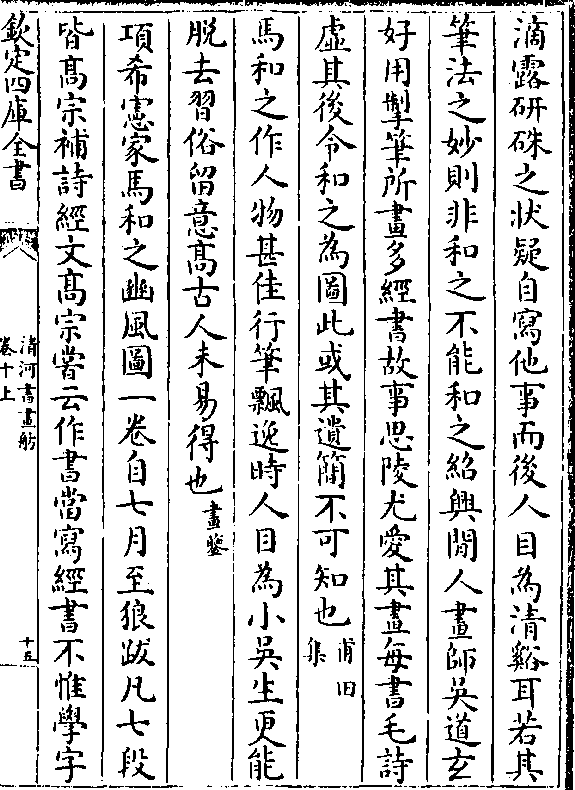 滴露研硃之狀疑自寫他事而後人目為清谿耳若其
筆法之妙則非和之不能和之紹興閒人畫師吳道玄
好用掣筆所畫多經書故事思陵尤愛其畫每書毛詩
虛其後令和之為圖此或其遺簡不可知也甫田集
馬和之作人物甚佳行筆飄逸時人目為小吳生更能
脫去習俗留意髙古人未易得也畫鑒
項希憲家馬和之豳風圖一卷自七月至狼跋凡七段
皆髙宗補詩經文髙宗嘗云作書當寫經書不惟學字
欽定四庫全書
清河書畫舫
卷十上
十五